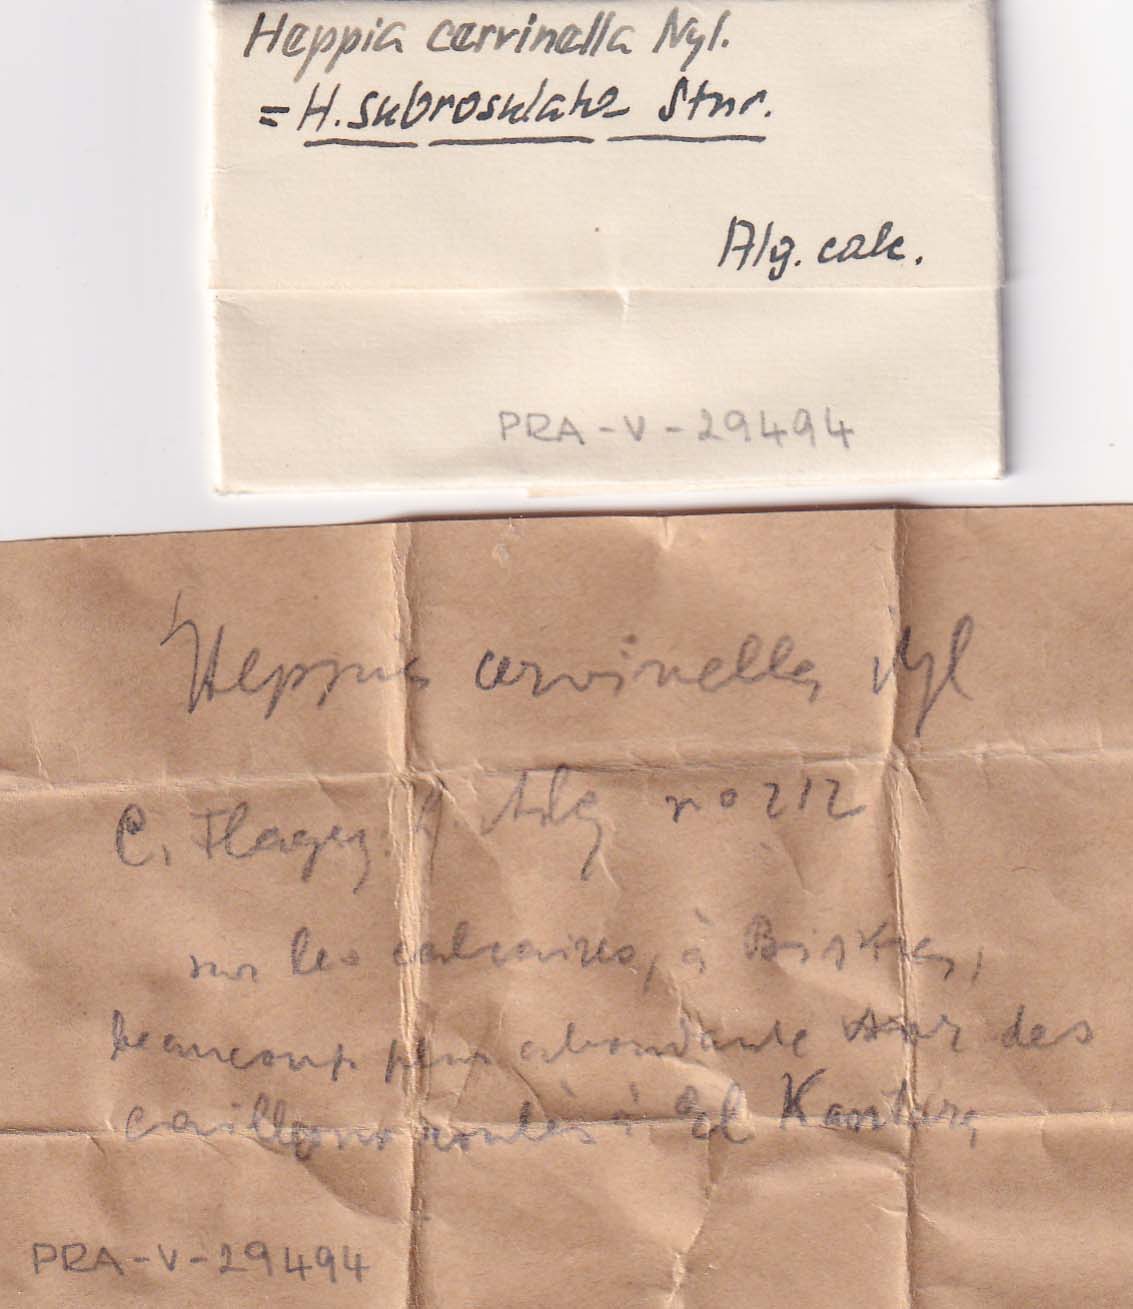 Heppia cervinella Nyl.
= H. subrosulata Stnr.
Alg. calc.
PRA-V-29494
Heppia cervinella Nyl
C. Flagey. L. Alg no 212
sur les calcaires, à Biskra,
beaucoup plus abondante sur des
cailloux roulés à El Kantara
PRA-V-29494